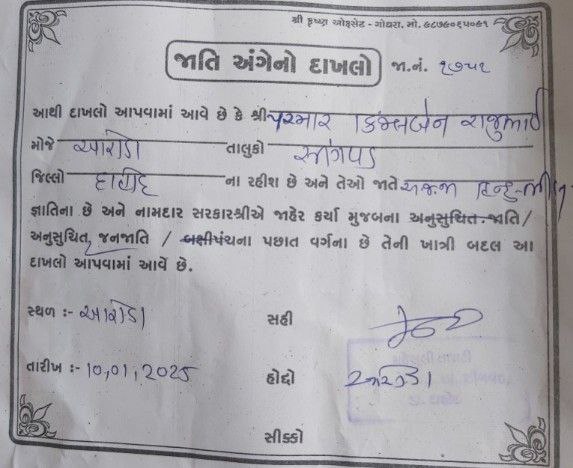 શ્રી કૃષ્ણ ઓફસેટ - ગોધરા. મો. ૯૮૭૯૦૬૫૦૯૧
જાતિ અંગેનો દાખલો જા.નં. ૨૭૫૧
આથી દાખલો આપવામાં આવે છે કે શ્રી પરમાર રાજુભાઈ
મોજે આરોડા તાલુકો
જિલ્લો દાહોદ ના રહીશ છે અને તેઓ જાતે અ.જ.જા હિન્દુ-ભીલ
જ્ઞાતિના છે અને નામદાર સરકારશ્રીએ જાહેર કર્યા મુજબના અનુસુચિત-જાતિ/
અનુસુચિત જનજાતિ / બક્ષીપંચના પછાત વર્ગના છે તેની ખાત્રી બદલ આ
દાખલો આપવામાં આવે છે.
સ્થળ :- આરોડા સહી
તારીખ :- 10,01,2025 હોદ્દો
સીક્કો